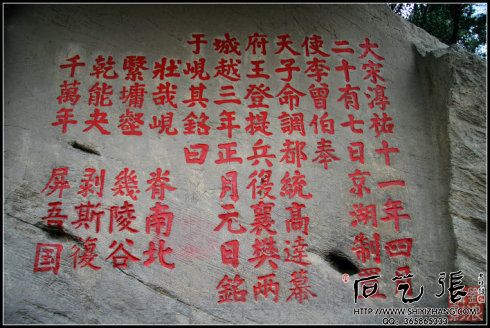 大宋淳祐十一年四月
二十有七日京湖制置
使李曾伯奉
天子命調都統高達幕
府王登提兵復襄樊兩
城越三年正月元日銘
于峴其銘曰
壯哉峴 脊南北
繄墉壑 幾陵谷
乾能夬 剥斯復
千萬年 屏吾国
石艺張
HTTP://WWW.SHIYIZHANG.COM